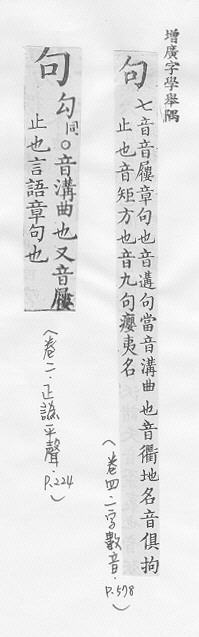 增廣字學舉隅
句
七音音屨章句也音遘句當音溝曲也音衢地名音俱拘
止也音矩方也音九句瘿夷名
(卷四.二字數音.P.578)
句
勾同○音溝曲也又音屨
止也言語章句也
(卷二.正譌.平聲.P.224)